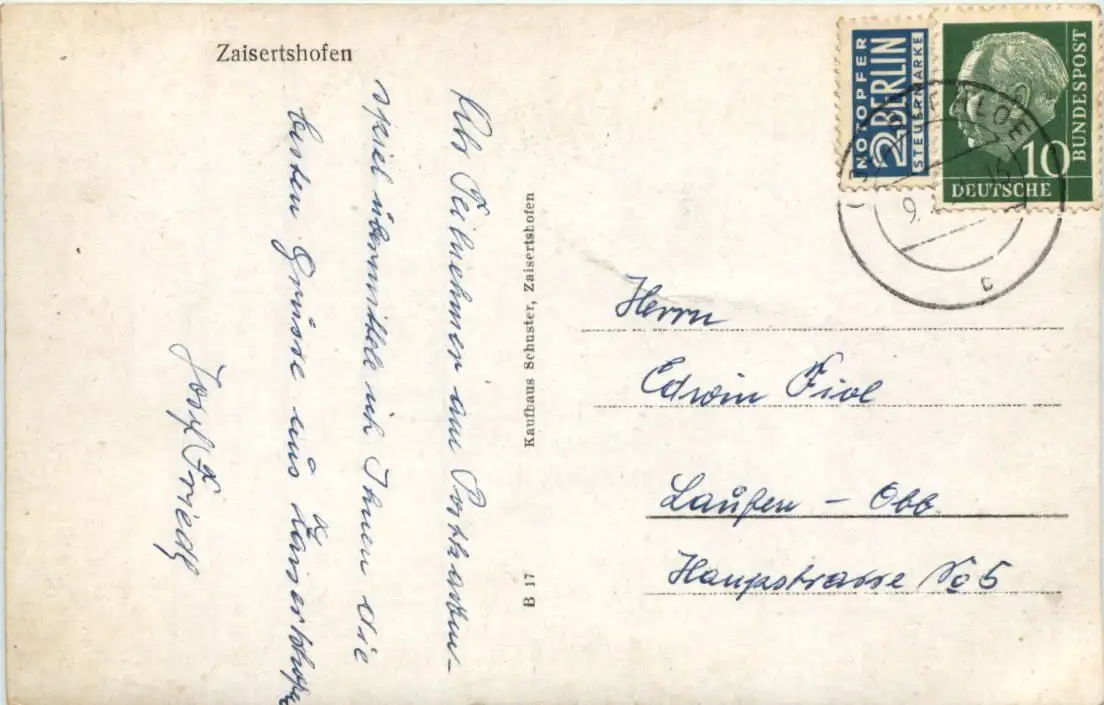 Zaisertshofen
Als Teilnehmer am Postkarten-
spiel übermittele ich Ihnen die
besten Grüsse aus Zaisertshofen
Josef Friedl
Kaufhaus Schuster, Zaisertshofen
B 17
NOTOPFER
2 BERLIN
STEUERMARKE
10
DEUTSCHE
BUNDESPOST
9.
15
c
Herrn
Edwin Fiol
Laufen - Obb
Haupstrasse No 5